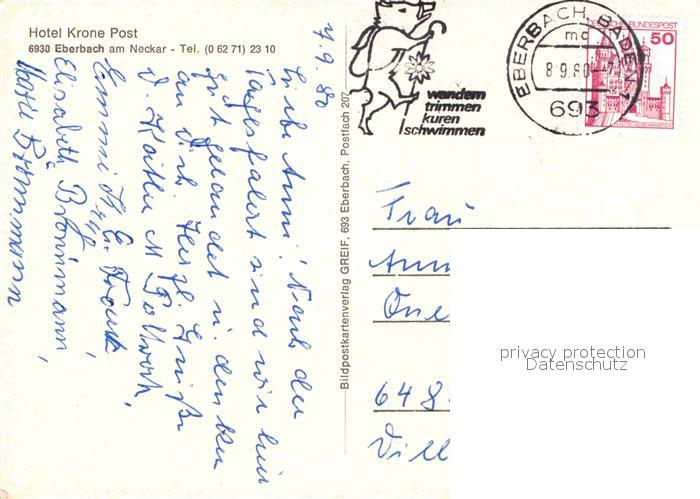 Hotel Krone Post
6930 Eberbach am Neckar - Tel. (0 62 71) 23 10
7.9.80
Liebe Anni! Nach der
Tagesfahrt sind wir hier
gut gelandet u. denken
an Dich. Herzl. Grüße
D. Käthe M
Emmi
Elisabeth Brönnimann,
Brönnimann
Bildpostkartenverlag GREIF, 693 Eberbach, Postfach 207
wandern
trimmen
kuren
schwimmen
EBERBACH, BADEN 1
mc
8.9.80
693
DEUTSCHE BUNDESPOST
50
Frau
648
privacy protection
Datenschutz